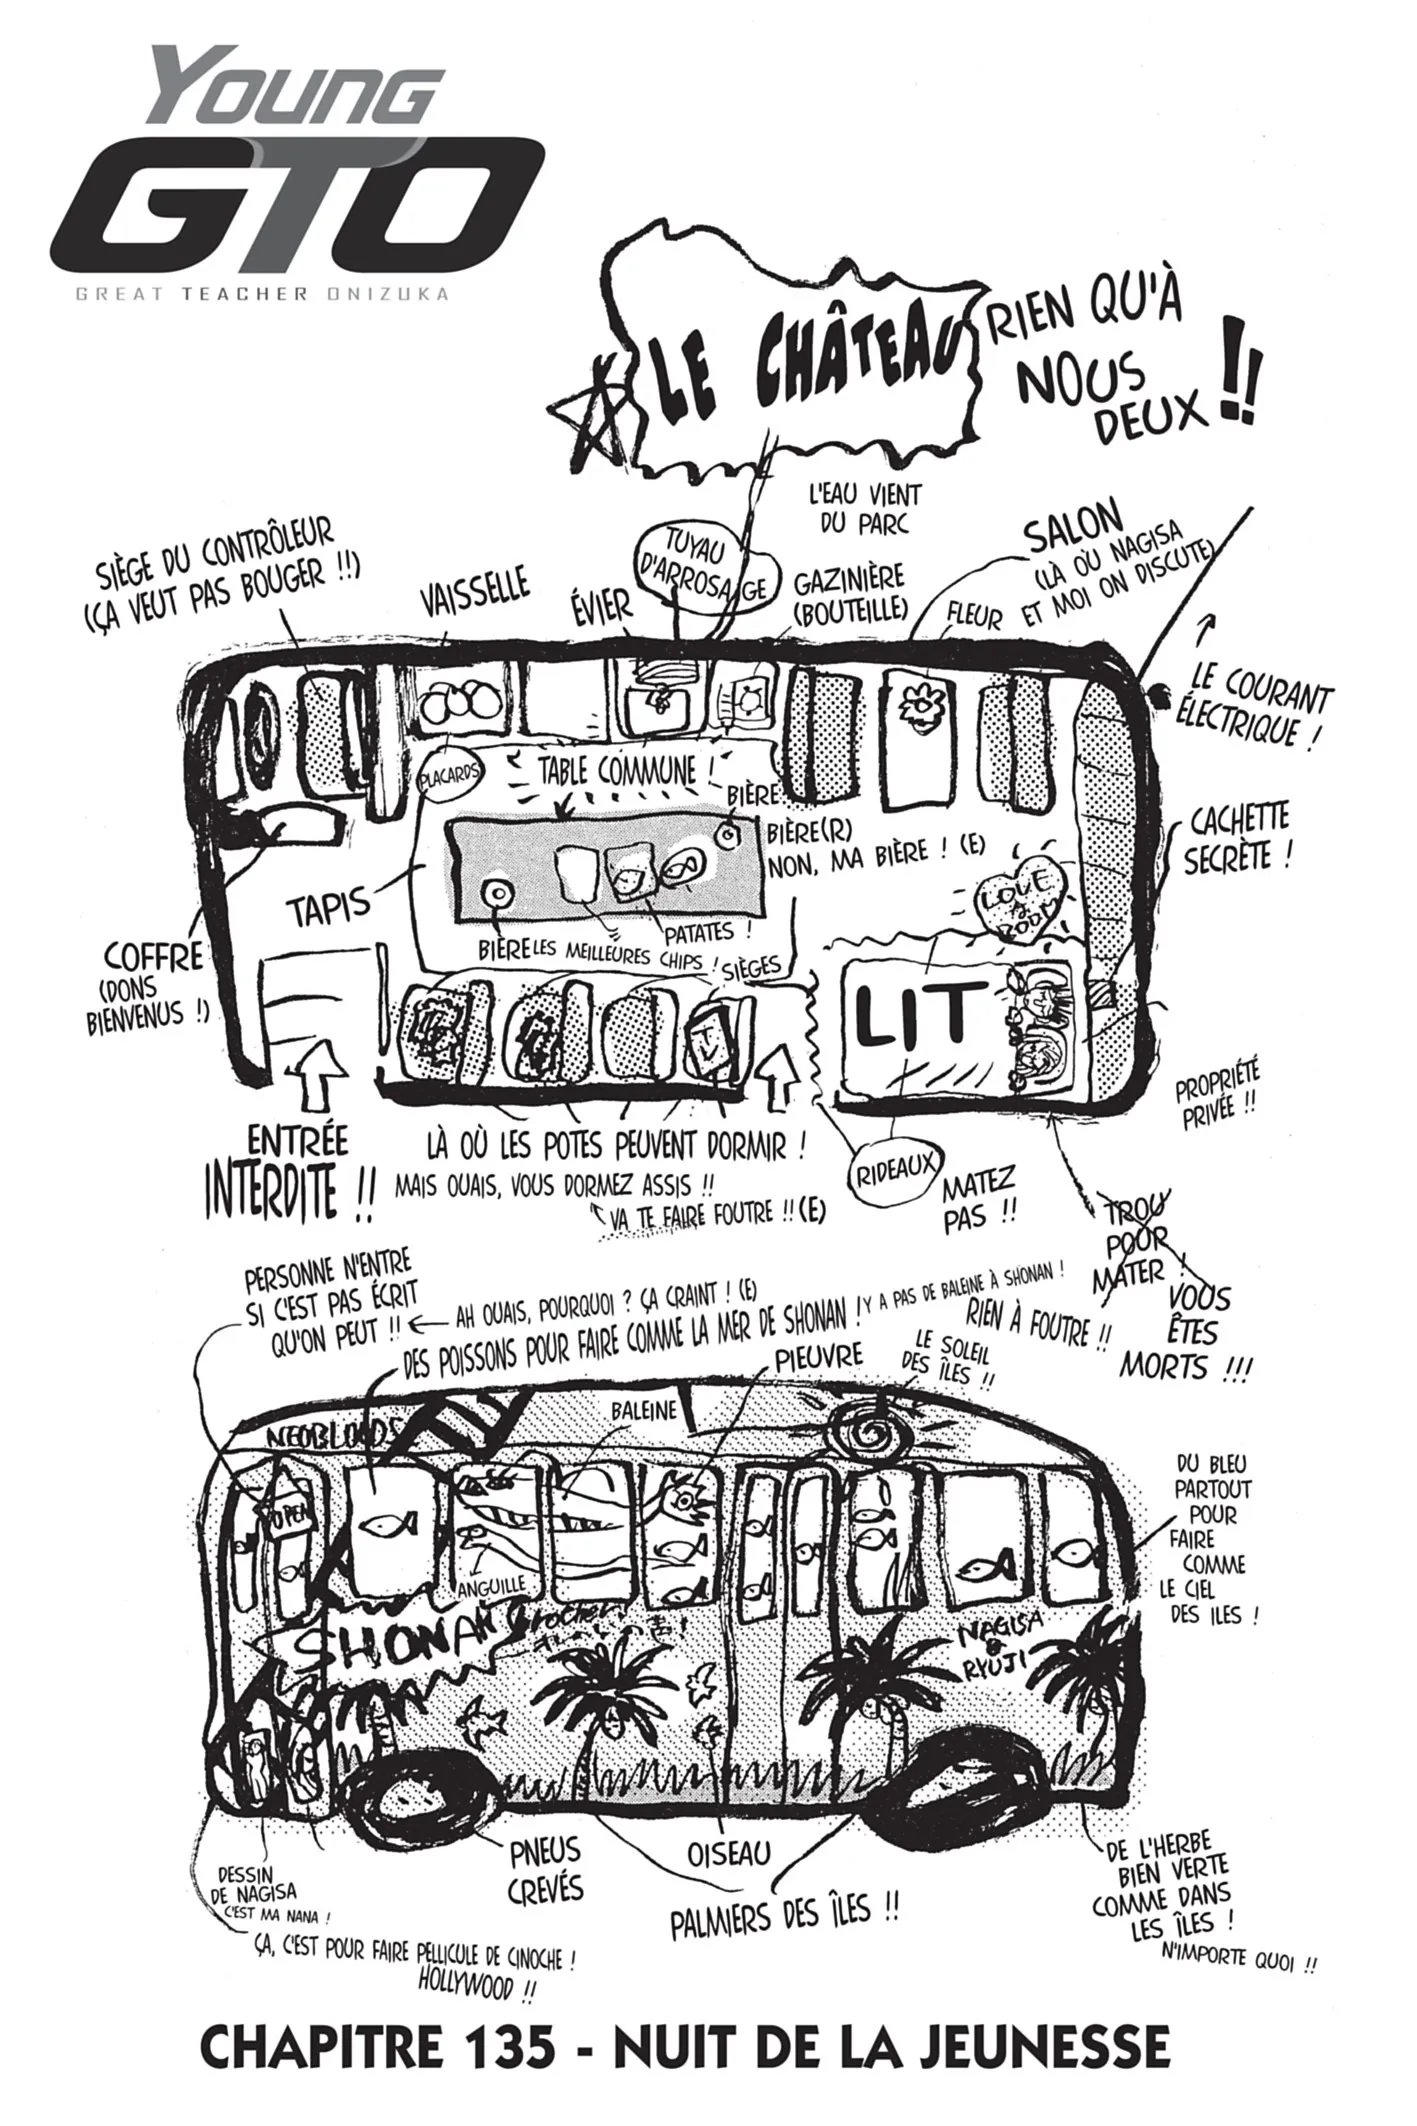 YOUNG
GTO
GREAT TEACHER ONIZUKA
LE CHÂTEAU
RIEN QU'À
NOUS
DEUX !!
L'EAU VIENT
DU PARC
SIÈGE DU CONTRÔLEUR
(ÇA VEUT PAS BOUGER !!)
VAISSELLE
ÉVIER
TUYAU
D'ARROSAGE
GAZINIÈRE
(BOUTEILLE)
FLEUR
SALON
(LÀ OÙ NAGISA
ET MOI ON DISCUTE)
LE COURANT
ÉLECTRIQUE !
PLACARDS
TABLE COMMUNE !
BIÈRE
BIÈRE(R)
NON, MA BIÈRE ! (E)
CACHETTE
SECRÈTE !
TAPIS
LOVE
ROOM
COFFRE
(DONS
BIENVENUS !)
BIÈRE
LES MEILLEURES CHIPS !
PATATES !
SIÈGES
TV
LIT
PROPRIÉTÉ
PRIVÉE !!
ENTRÉE
INTERDITE !!
LÀ OÙ LES POTES PEUVENT DORMIR !
MAIS OUAIS, VOUS DORMEZ ASSIS !!
VA TE FAIRE FOUTRE !! (E)
RIDEAUX
MATEZ
PAS !!
TROU
POUR
MATER !
VOUS
ÊTES
MORTS !!!
PERSONNE N'ENTRE
SI C'EST PAS ÉCRIT
QU'ON PEUT !!
AH OUAIS, POURQUOI ? ÇA CRAINT ! (E)
DES POISSONS POUR FAIRE COMME LA MER DE SHONAN !
Y A PAS DE BALEINE À SHONAN !
RIEN À FOUTRE !!
PIEUVRE
LE SOLEIL
DES ÎLES !!
NEOBLOODS
BALEINE
OPEN
ANGUILLE
DU BLEU
PARTOUT
POUR
FAIRE
COMME
LE CIEL
DES ILES !
SHONAN
NAGISA
&
RYUJI
PNEUS
CREVÉS
OISEAU
PALMIERS DES ÎLES !!
DE L'HERBE
BIEN VERTE
COMME DANS
LES ÎLES !
N'IMPORTE QUOI !!
DESSIN
DE NAGISA
C'EST MA NANA !
ÇA, C'EST POUR FAIRE PELLICULE DE CINOCHE !
HOLLYWOOD !!
CHAPITRE 135 - NUIT DE LA JEUNESSE